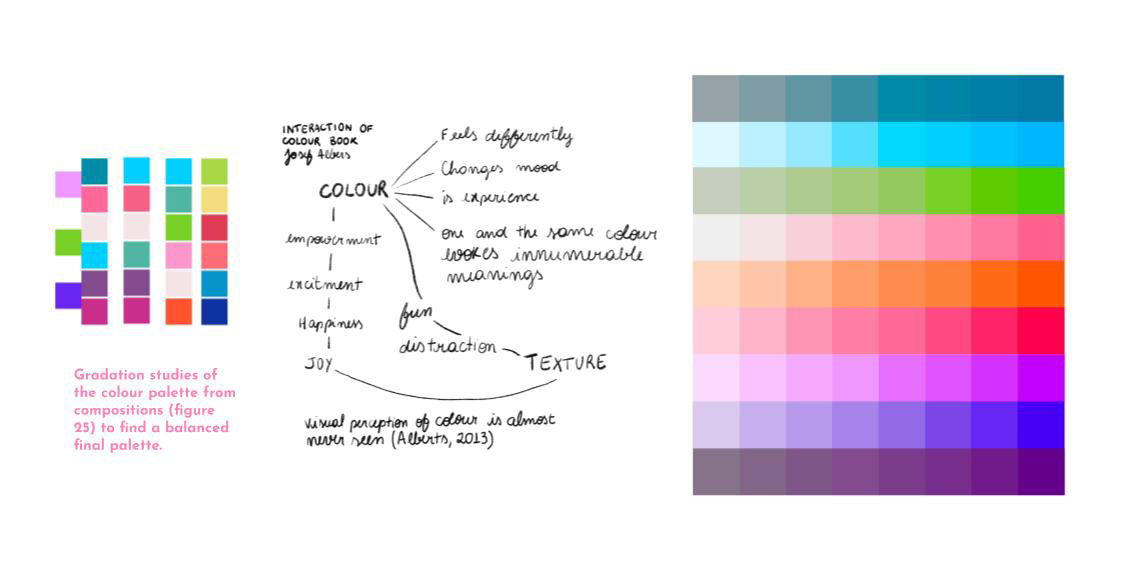 INTERACTION OF
COLOUR BOOK
Josef Albers
COLOUR
empowerment
excitment
Happiness
JOY
Feels differently
Changes mood
is experience
one and the same colour
evokes innumerable
meanings
fun
distraction
TEXTURE
visual perception of colour is almost
never seen (Alberts, 2013)
Gradation studies of
the colour palette from
compositions (figure
25) to find a balanced
final palette.